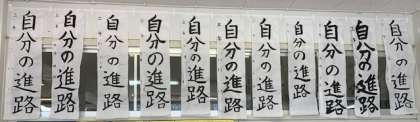 自分の進路
自分の進路
自分の進路
自分の進路
自分の進路
自分の進路
自分の進路
自分の進路
自分の進路
自分の進路